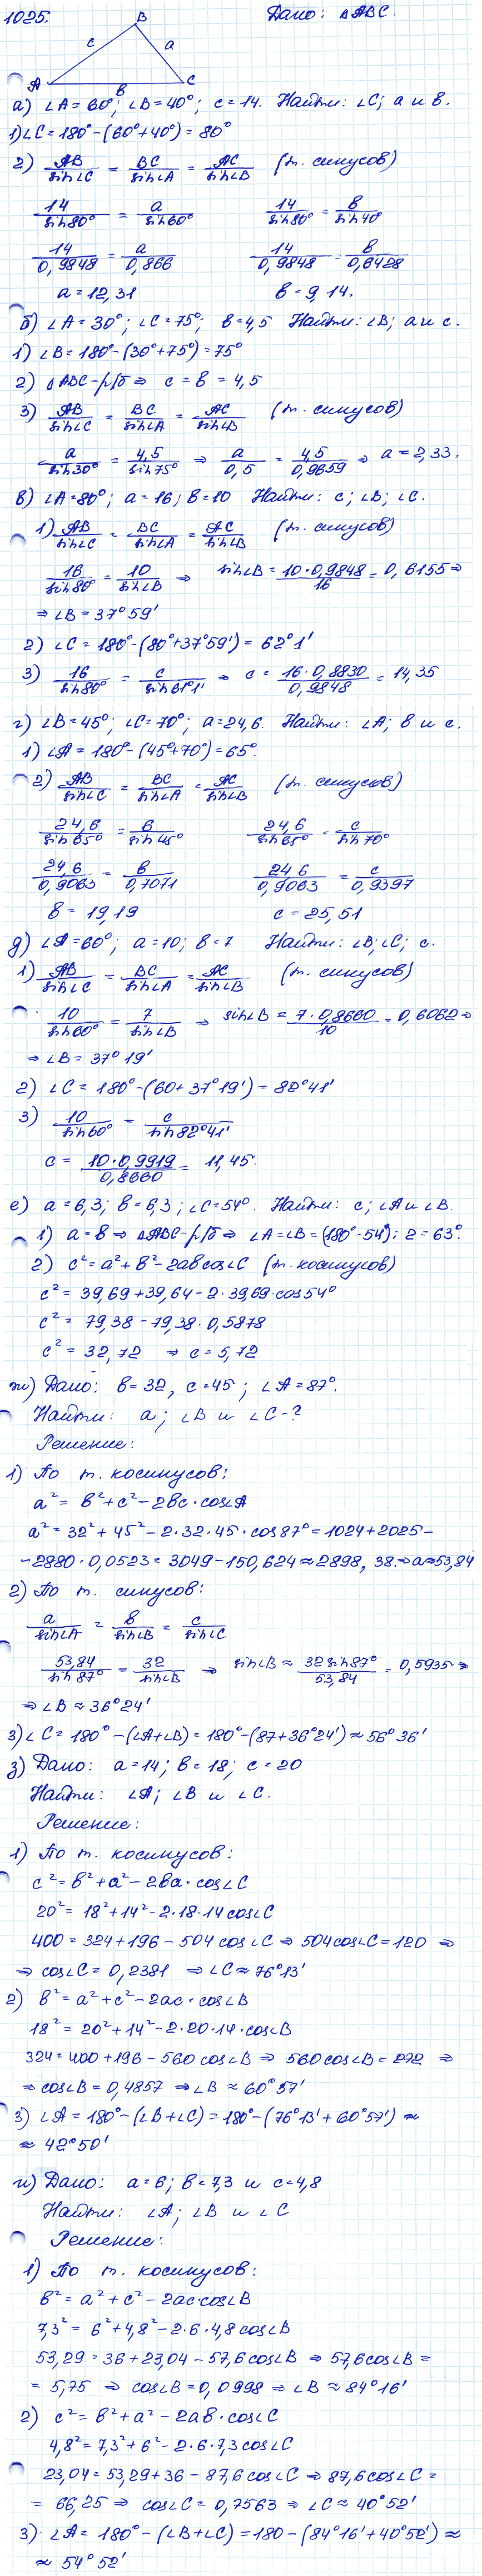 1025.
Дано: △ABC.
B
c
a
A
в
C
а) ∠A=60°; ∠B=40°; c=14. Найти: ∠C; a и в.
1) ∠C=180°-(60°+40°)=80°
2) AB/sin∠C = BC/sin∠A = AC/sin∠B (т. синусов)
14/sin80° = a/sin60° 14/sin80° = в/sin40°
14/0,9848 = a/0,866 14/0,9848 = в/0,6428
a=12,31 в=9,14.
б) ∠A=30°; ∠C=75°; в=4,5 Найти: ∠B; a и c.
1) ∠B=180°-(30°+75°)=75°
2) △ABC-р/б ⇒ c=в=4,5
3) AB/sin∠C = BC/sin∠A = AC/sin∠B (т. синусов)
a/sin30° = 4,5/sin75° ⇒ a/0,5 = 4,5/0,9659 ⇒ a=2,33.
в) ∠A=80°; a=16; в=10 Найти: c; ∠B; ∠C.
1) AB/sin∠C = BC/sin∠A = AC/sin∠B (т. синусов)
16/sin80° = 10/sin∠B ⇒ sin∠B = 10·0,9848/16 = 0,6155 ⇒
⇒ ∠B=37°59'
2) ∠C=180°-(80°+37°59')=62°1'
3) 16/sin80° = c/sin61°1' ⇒ c = 16·0,8830/0,9848 = 14,35
г) ∠B=45°; ∠C=70°; a=24,6. Найти: ∠A; в и c.
1) ∠A=180°-(45°+70°)=65°.
2) AB/sin∠C = BC/sin∠A = AC/sin∠B (т. синусов)
24,6/sin65° = в/sin45° 24,6/sin65° = c/sin70°
24,6/0,9063 = в/0,7071 24,6/0,9063 = c/0,9397
в=19,19 c=25,51
д) ∠A=60°; a=10; в=7 Найти: ∠B; ∠C; c.
1) AB/sin∠C = BC/sin∠A = AC/sin∠B (т. синусов)
10/sin60° = 7/sin∠B ⇒ sin∠B = 7·0,8660/10 = 0,6062 ⇒
⇒ ∠B=37°19'
2) ∠C=180°-(60+37°19')=82°41'
3) 10/sin60° = c/sin82°41'
c = 10·0,9919/0,8660 = 11,45.
е) a=6,3; в=6,3; ∠C=54°. Найти: c; ∠A и ∠B.
1) a=в ⇒ △ABC-р/б ⇒ ∠A=∠B=(180°-54°):2=63°.
2) c²=a²+в²-2aвcos∠C (т. косинусов)
c²=39,69+39,64-2·39,69·cos54°
c²=79,38-79,38·0,5878
c²=32,72 ⇒ c=5,72
ж) Дано: в=32, c=45; ∠A=87°.
Найти: a; ∠B и ∠C-?
Решение:
1) По т. косинусов:
a²=в²+c²-2вc·cos∠A
a²=32²+45²-2·32·45·cos87°=1024+2025-
-2880·0,0523=3049-150,624≈2898,38.⇒a≈53,84
2) По т. синусов:
a/sin∠A = в/sin∠B = c/sin∠C
53,84/sin87° = 32/sin∠B ⇒ sin∠B ≈ 32sin87°/53,84 = 0,5935 ⇒
⇒ ∠B≈36°24'
3) ∠C=180°-(∠A+∠B)=180°-(87+36°24')≈56°36'
з) Дано: a=14; в=18; c=20
Найти: ∠A; ∠B и ∠C.
Решение:
1) По т. косинусов:
c²=в²+a²-2вa·cos∠C
20²=18²+14²-2·18·14cos∠C
400=324+196-504cos∠C ⇒ 504cos∠C=120 ⇒
⇒ cos∠C=0,2381 ⇒ ∠C≈76°13'
2) в²=a²+c²-2ac·cos∠B
18²=20²+14²-2·20·14·cos∠B
324=400+196-560cos∠B ⇒ 560cos∠B=272 ⇒
⇒ cos∠B=0,4857 ⇒ ∠B≈60°57'
3) ∠A=180°-(∠B+∠C)=180°-(76°13'+60°57')≈
≈42°50'
и) Дано: a=6; в=7,3 и c=4,8
Найти: ∠A; ∠B и ∠C
Решение:
1) По т. косинусов:
в²=a²+c²-2ac·cos∠B
7,3²=6²+4,8²-2·6·4,8cos∠B
53,29=36+23,04-57,6cos∠B ⇒ 57,6cos∠B=
=5,75 ⇒ cos∠B=0,0998 ⇒ ∠B≈84°16'
2) c²=в²+a²-2aв·cos∠C
4,8²=7,3²+6²-2·6·7,3cos∠C
23,04=53,29+36-87,6cos∠C ⇒ 87,6cos∠C=
=66,25 ⇒ cos∠C=0,7563 ⇒ ∠C≈40°52'
3) ∠A=180°-(∠B+∠C)=180-(84°16'+40°52')≈
≈54°52'